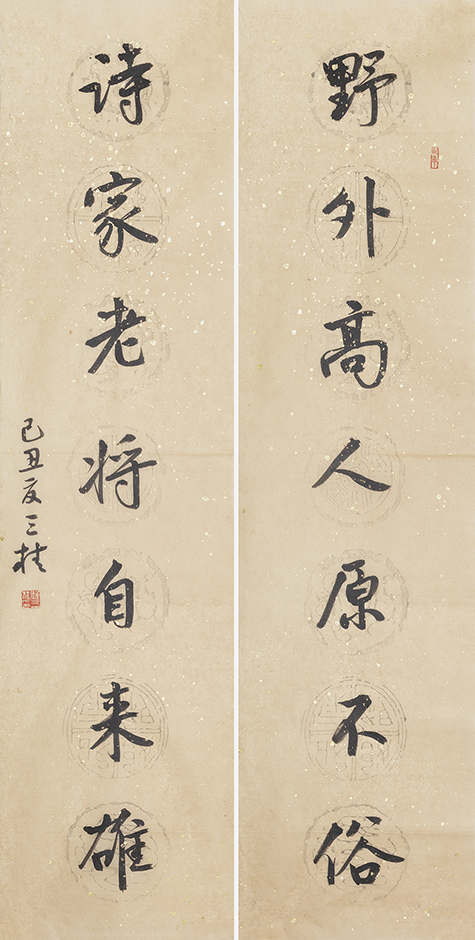 野外高人原不俗
诗家老将自来雄
己丑夏三桂